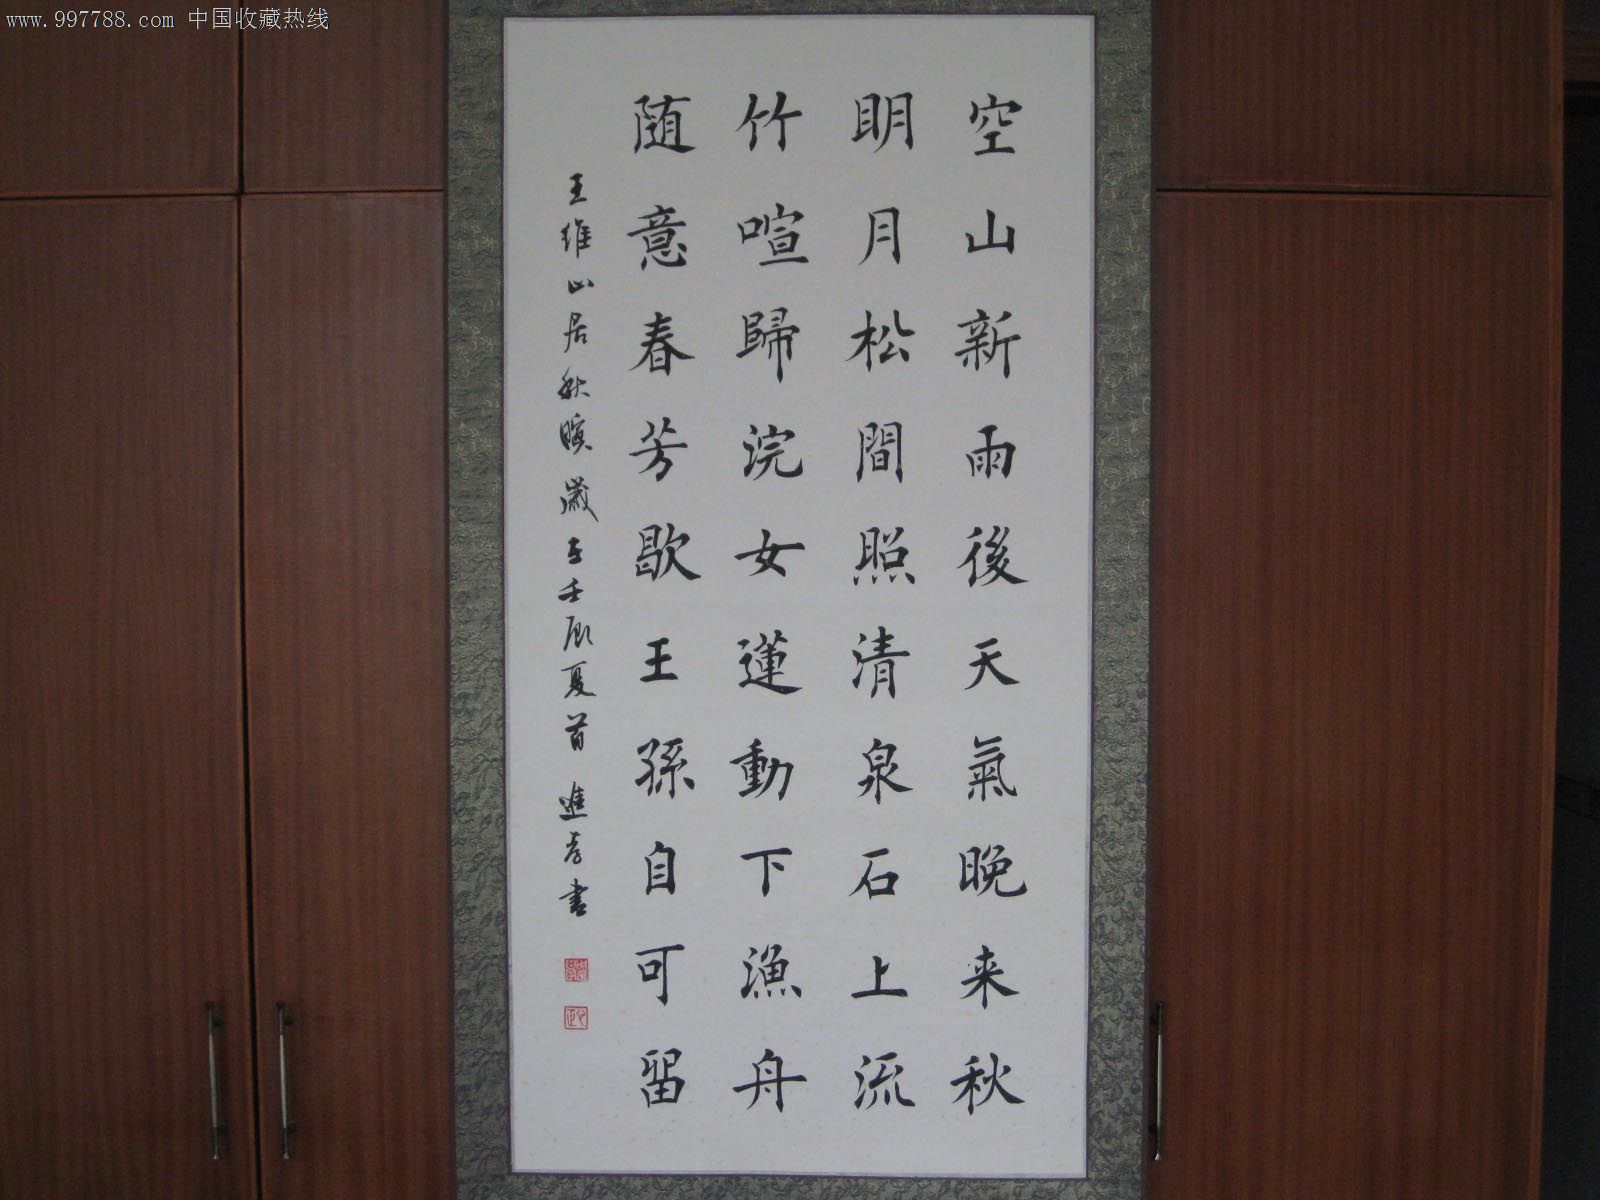 www.997788.com 中国收藏热线
空山新雨後天氣晚来秋
明月松間照清泉石上流
竹喧歸浣女蓮動下漁舟
随意春芳歇王孫自可留
王維山居秋暝歲在壬辰夏首 進孝書